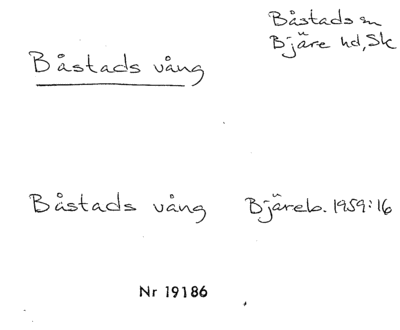 Båstads sn
Bjäre hd, Sk
Båstads vång
Båstads vång Bjäreb. 1959:16
Nr 19186